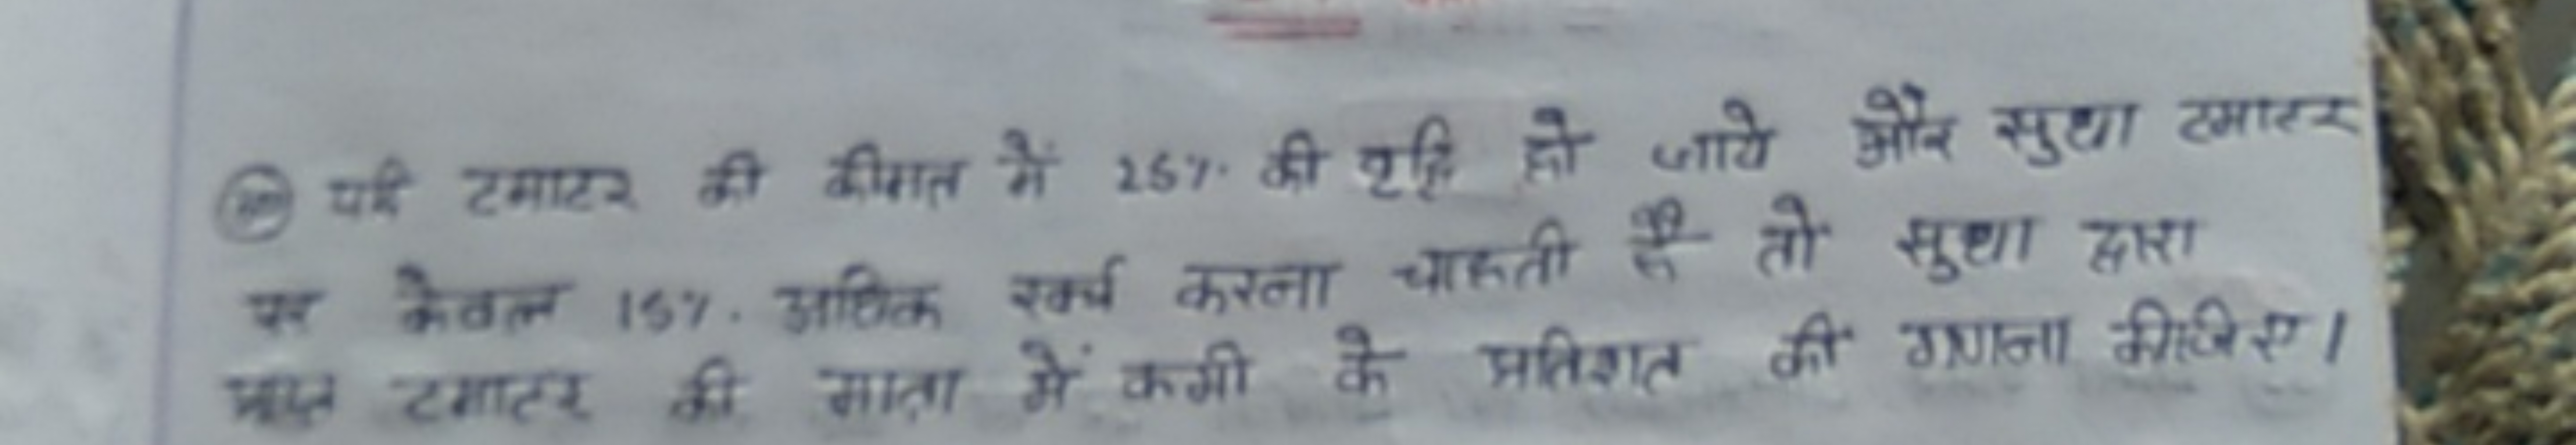 यदि टमाटर की कीमत में 25%. की वृद्धि हो जाये और सुधा टमाटर
पर केवल 15%. अधिक खर्च करना चाहती है तो सुधा द्वारा
प्राप्त टमाटर की मात्रा में कमी के प्रतिशत की गणना कीजिए।